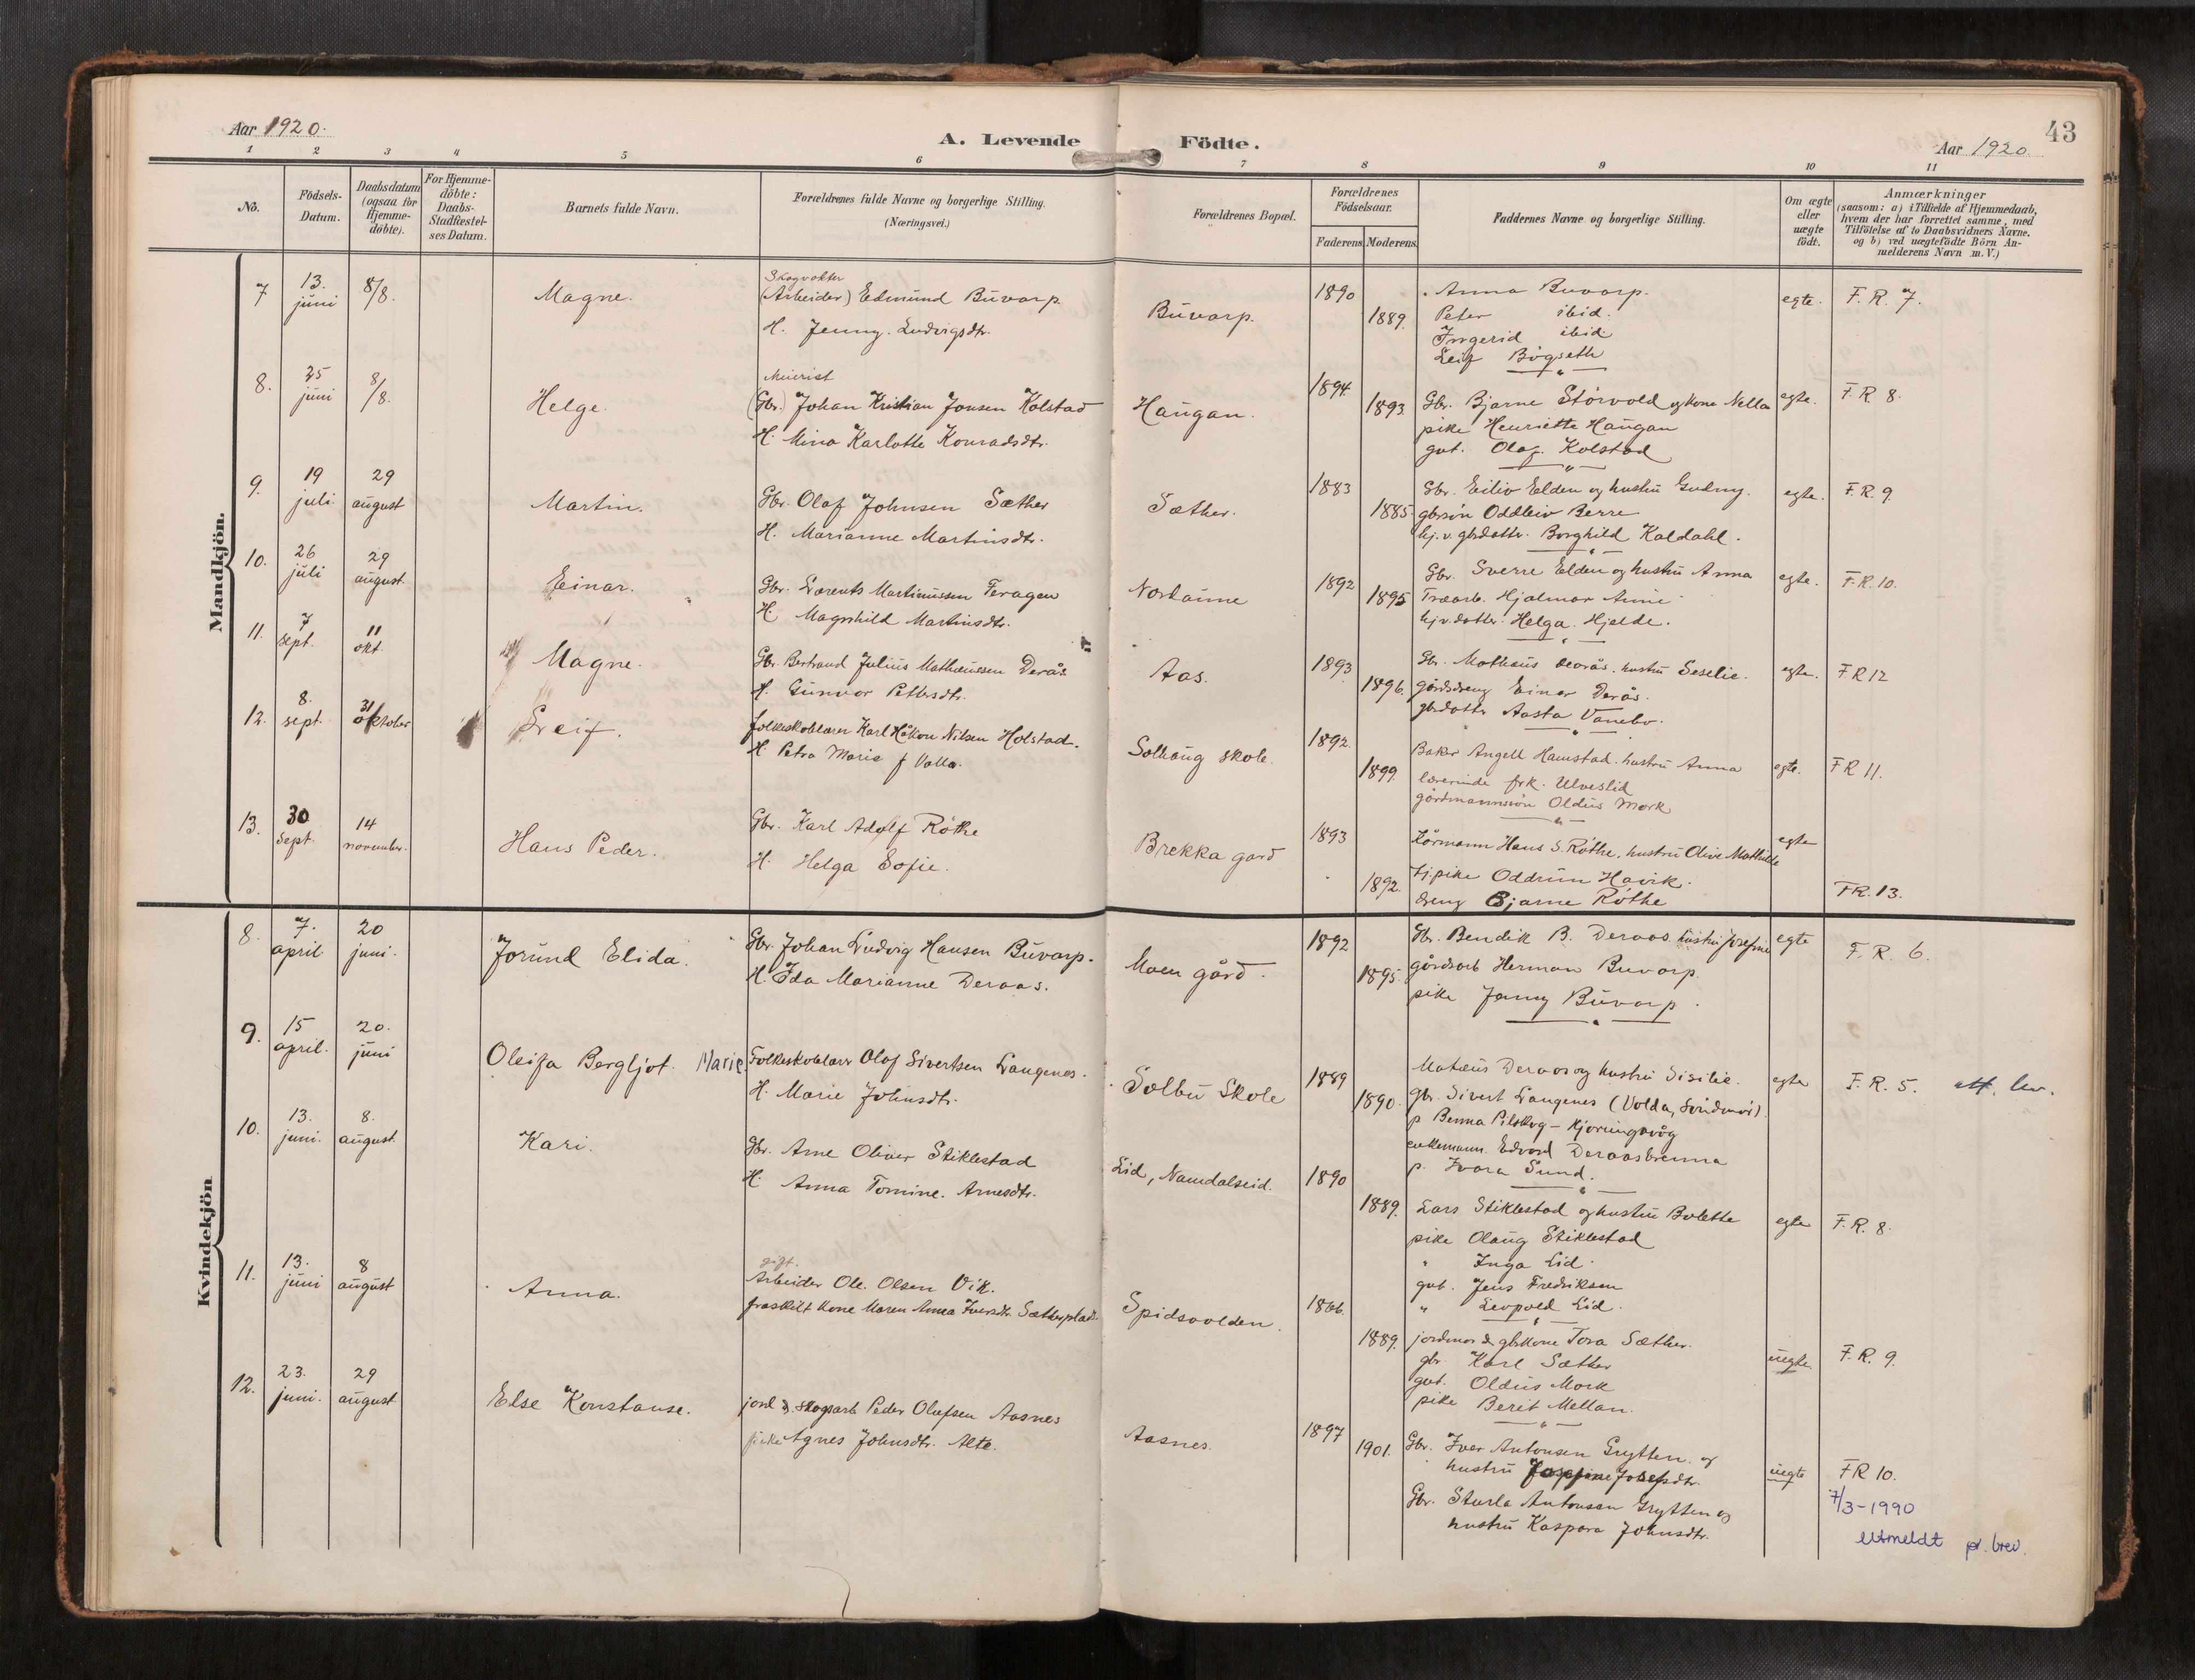 Aar 1920.
A. Levende Födte.
43
Aar 1920
1 2 3 4 5 6 7 8 9 10 11
No.
Födsels-
Datum.
Daabsdatum
(ogsaa for
Hjemme-
döbte).
For Hjemme-
döbte:
Daabs-
Stadfæstel-
ses Datum.
Barnets fulde Navn.
Forældrenes fulde Navne og borgerlige Stilling.
(Næringsvei.)
Forældrenes Bopæl.
Forældrenes
Födselsaar.
Faderens. Moderens.
Faddernes Navne og borgerlige Stilling.
Om ægte
eller
uægte
födt.
Anmærkninger
(saasom: a) i Tilfælde af Hjemmedaab,
hvem der har forrettet samme, med
Tilföielse af to Daabsvidners Navne.
og b) ved uægtefödte Börn An-
melderens Navn m. V.)
Mandkjön.
7 13. juni 8/8. Magne.
Skogvokter
(Arbeider) Edmund Buvarp
H. Jenny. Ludvigsdtr.
Buvarp.
1890
1889.
Anna Buvarp.
Peter ibid.
Ingerid ibid
Leif Bögseth
egte. F. R. 7.
8. 25 juni 8/8. Helge.
Meierist
(Gbr.) Johan Kristian Jonsen Kolstad
H. Mina Karlotte Konradsdtr.
Haugan.
1894.
1893.
Gbr. Bjarne Störvold og kone Nella
pike Henriette Haugan
gut. Olaf. Kolstad
egte. F. R. 8.
9. 19 juli 29 august Martin.
Gbr. Olaf Johnsen Sæther
H. Marianne Martinsdtr.
Sæther.
1883
1885.
Gbr. Eiliv Elden og hustru Gudny.
gbrsön Oddleiv Berre
hj.v. gbrdattr. Borghild Kaldahl.
egte. F. R. 9.
10. 26 juli 29 august. Einar.
Gbr. Lorents Martinussen Feragen
H. Magnhild Martinsdtr.
Nordaune
1892
1895
Gbr. Sverre Elden og hustru Anna
Træarb. Hjalmar Aune
hjv.datter. Helga. Hjelde.
egte. F.R. 10.
11. 7 sept. 11 okt. Magne.
Gbr. Bertrand Julius Mathæussen Derås
H. Gunvor Pettersdtr.
Aas.
1893
1896.
Gbr. Mathæus Derås. hustru Seselie.
gårdsdreng Einar Derås.
gbrdatter Aasta Vanebo.
egte. F. R 12
12. 8. sept. 31 oktober Leif.
folkeskolelærer Karl Håkon Nilsen Holstad.
H. Petra Marie f Valla.
Solhaug skole.
1892.
1899.
Baker Angell Hamstad. hustru Anna
lærerinde frk. Ulveslid
gårdmannssön Oldus Mork
egte. FR 11.
13. 30 sept. 14 november. Hans Peder.
Gbr. Karl Adolf Röthe
H. Helga Sofie.
Brekka gard
1893
1892.
Körmann Hans S. Röthe, hustru Olive Mathilde
Tj.pike Oddrun Havik.
dreng Bjarne Röthe
egte FR. 13.
Kvindekjön
8. 7. april 20 juni. Jorund Elida.
Gbr. Johan Ludvig Hansen Buvarp.
H. Ida Marianne Deraas.
Moen gård.
1892
1895.
Gbr. Bendik B. Deraas. hustru Josefine
gårdsarb Herman Buvarp.
pike Jenny Buvarp.
egte F. R. 6.
9. 15 april. 20. juni Oleifa Bergljot. Marie.
Folkeskolelærer Olaf Sivertsen Langenes.
H. Marie Johnsdtr.
Solbu Skole
1889
1890.
Matæus Deraas og hustru Sisilie.
gbr. Sivert Langenes (Volda, Söndmör).
p Benna Pilskog - Kjørungvåg
enkemann. Edvard Deraasbrenna
p. Ivara Sund.
egte F. R. 5. att. lev.
10. 13. juni. 8. august. Kari.
Gbr. Arne Oliver Stiklestad
H. Anna Tomine. Arnesdtr.
Lid, Namdalseid.
1890
1889.
Lars Stiklestad og hustru Bolette
pike Olaug Stiklestad
" Inga Lid.
gut. Jens Fredriksen
" Leopold Lid.
egte F. R. 8.
11. 13. juni 8 august Anna.
gift.
Arbeider Ole. Olsen Vik.
fraskilt kone Maren Anna Iversdtr. Sætherplads.
Spidsvolden.
1866.
1889.
jordmor & gbrkone Tora Sæther.
gbr. Karl Sæther
gut. Oldus Mork
pike Berit Mellan.
uegte F. R. 9.
12. 23. juni. 29 august Else Konstanse.
jord & skogsarb Peder Olufsen Aasnes
pike Agnes Johnsdtr. Alte.
Aasnes.
1897
1901.
Gbr. Iver Antonsen Grytten. og
hustru Josefine Josefsdtr.
Gbr. Sturla Antonsen Grytten og
hustru Kaspara Johnsdtr.
uegte FR 10.
7/3-1990
Utmeldt pr. brev.